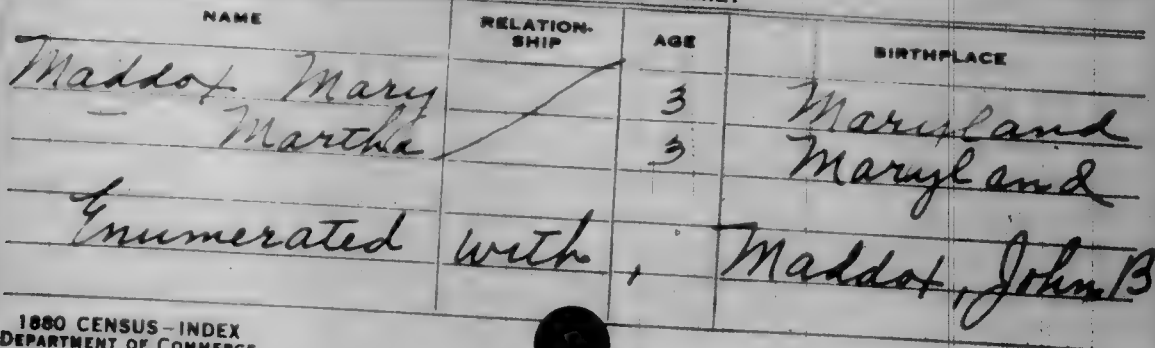 NAME RELATION-SHIP AGE BIRTHPLACE
Maddox Mary 3 Maryland
— Martha 3 Maryland
Enumerated with, Maddox, John B
1880 CENSUS-INDEX
DEPARTMENT OF COMMERCE